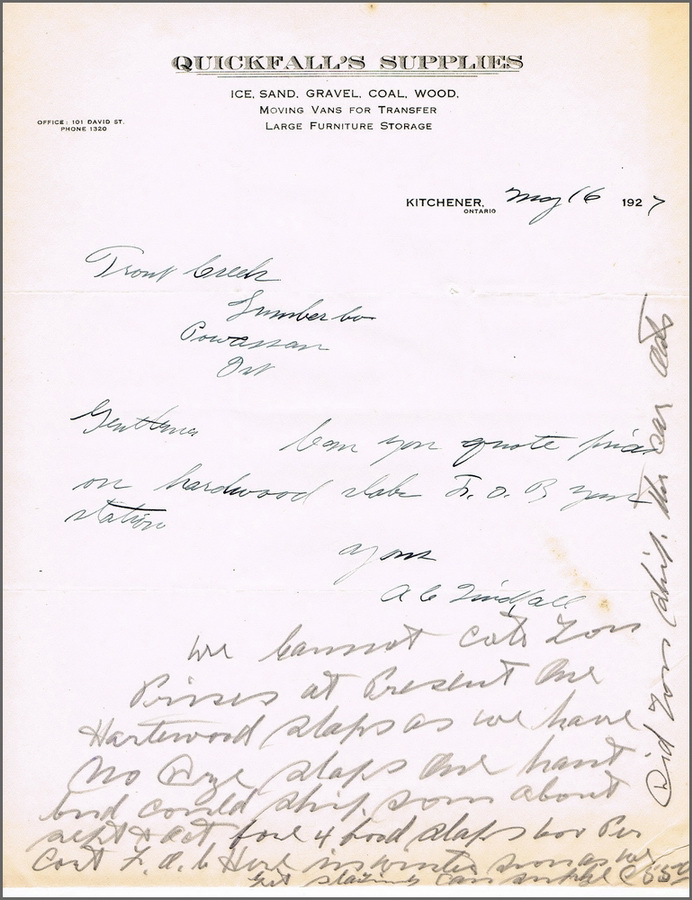 QUICKFALL'S SUPPLIES
ICE, SAND, GRAVEL, COAL, WOOD,
MOVING VANS FOR TRANSFER
LARGE FURNITURE STORAGE
OFFICE: 101 DAVID ST.
PHONE 1320
KITCHENER, May 16 1927
ONTARIO
Trout Creek
Lumber Co
Powassan
Ont
Gentlemen Can you quote prices
on hardwood slabs F. O. B your
station
yours
A C Quickfall
We Cannot Cote You
Prises at Present One
Hartewood slaps as we have
No Drye slaps One hant
but could ship som about
sept & Oct fore 4 food slaps
Per
Cort F. O. b Here in winter soon as we
Get
Did You Ship this car